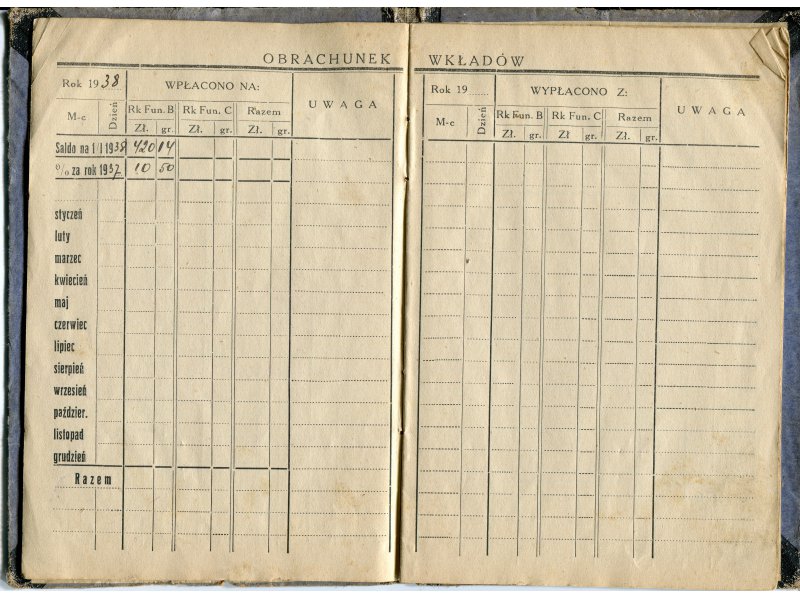 OBRACHUNEK WKŁADÓW
Rok 1938 WPŁACONO NA: UWAGA
M-c Dzień Rk Fun. B Rk Fun. C Razem
Zł. gr. Zł. gr. Zł. gr.
Saldo na 1/I 1938 420 14
% za rok 1937 10 50
styczeń
luty
marzec
kwiecień
maj
czerwiec
lipiec
sierpień
wrzesień
paździer.
listopad
grudzień
Razem
Rok 19 WYPŁACONO Z: UWAGA
M-c Dzień Rk Fun. B Rk Fun. C Razem
Zł. gr. Zł gr. Zł. gr.